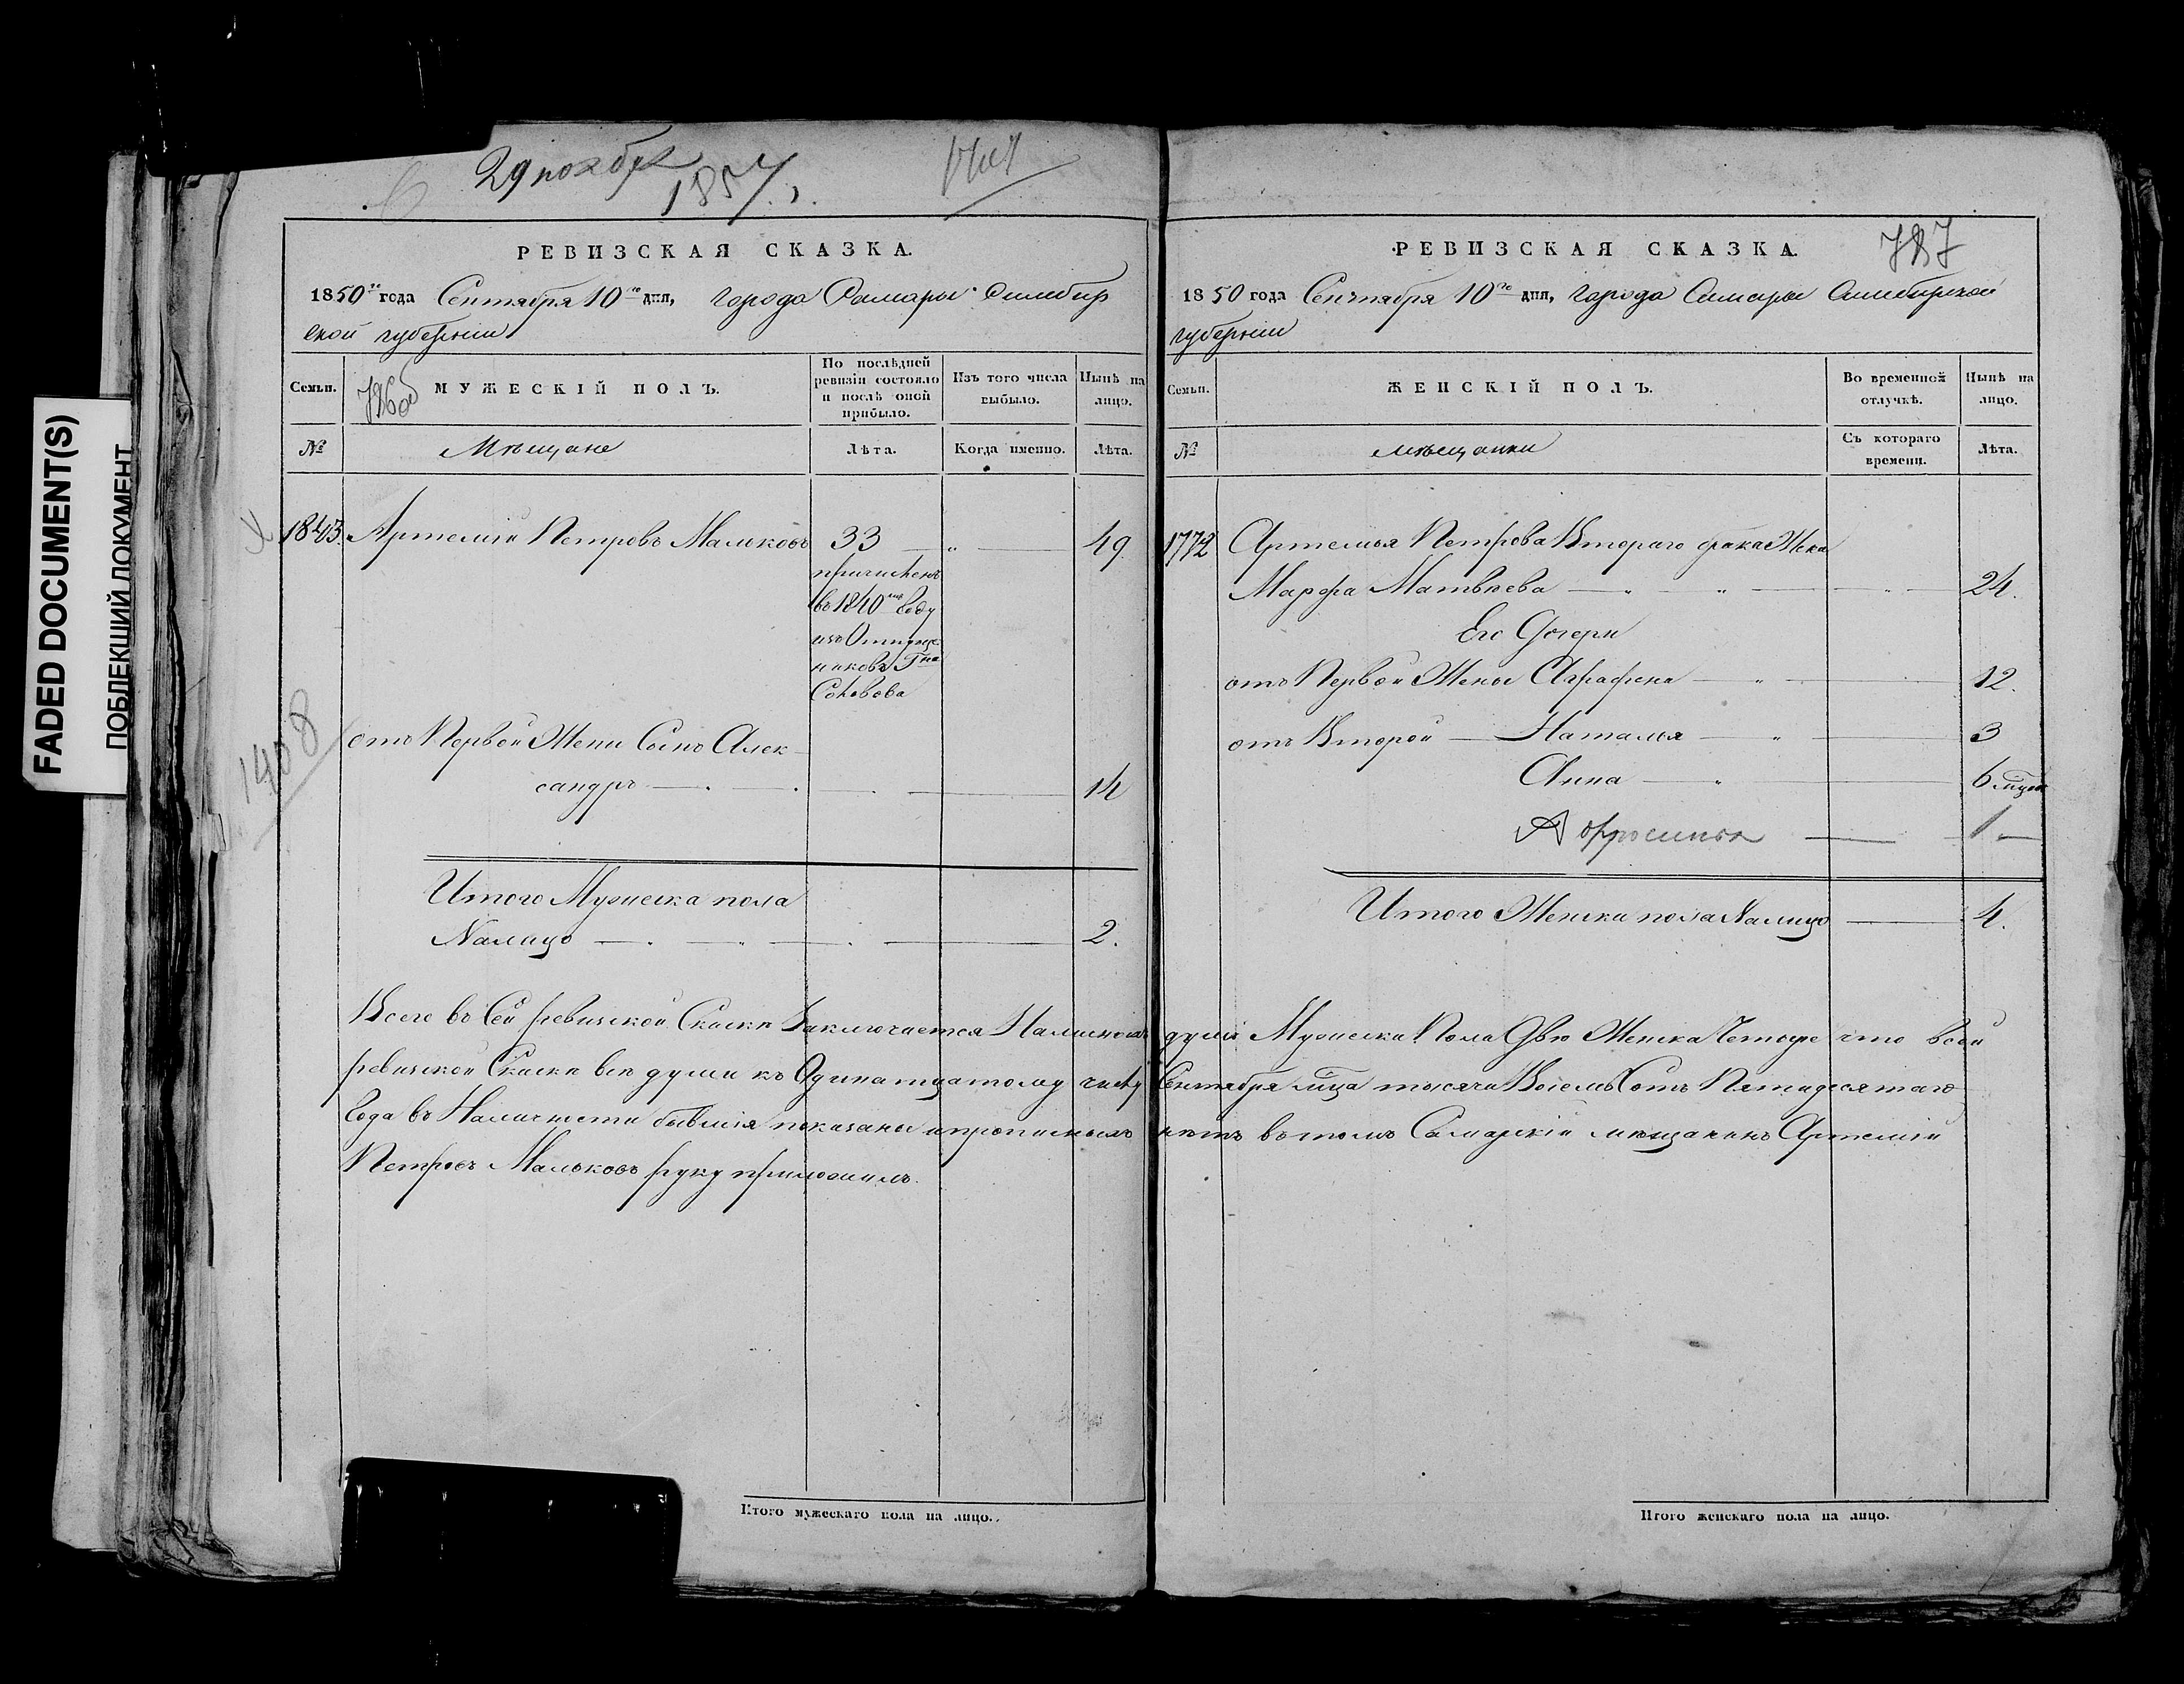 FADED DOCUMENT(S)
ПОБЛЕКШИЙ ДОКУМЕНТ
29 ноября
1857.
РЕВИЗСКАЯ СКАЗКА.
1850го года Сентября 10го дня, города Самары Симбир
ской губернии
Семьи.
МУЖЕСКІЙ ПОЛЪ.
По послѣдней
ревизіи состояло
и послѣ оной
прибыло.
Изъ того числа
выбыло.
Нынѣ на
лицо.
№
Мѣщане
Лѣта.
Когда именно.
Лѣта.
1843. Артемій Петровъ Мальковъ 33 — „ — 49
причисленъ
въ 1840мъ году
изъ Отпуще
никовъ Гна
1408
отъ Первой Жены Сынъ Алек
сандръ — 14
Итого Мужеска пола
Налицо — 2.
Всего въ Сей ревиской Скаски Заключается Наличныхъ
ревиской Скаски всѣ души къ Одинатцатому числу
Года въ Наличности бывшія показаны и прописныхъ
Петровъ Мальковъ руку приложилъ.
Итого мужескаго пола на лицо.
787
РЕВИЗСКАЯ СКАЗКА.
1850 года Сентября 10го дня, города Самары Симбирской
губернии
Семьи.
ЖЕНСКІЙ ПОЛЪ.
Во временной
отлучкѣ.
Нынѣ на
лицо.
№
мѣщанки
Съ котораго
времени.
Лѣта.
1772 Артемья Петрова Втораго брака Жена
Марфа Матвѣева — 24.
Его Дочери
отъ Первой Жены Аграфена — 12.
отъ Второй — Наталья — 3
Анна — 6 мцов
Афросинья — 1 —
Итого Женска пола Налицо — 4.
душъ Мужеска Пола Двѣ Женска Четыре что всей
Сентября мца тысяча Восемь Сотъ Пятидесятаго
нѣтъ въ томъ Самарскій мѣщанинъ Артемій
Итого женскаго пола на лицо.